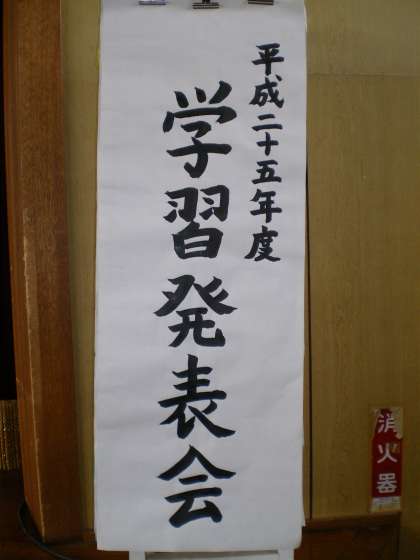 平成二十五年度
学習発表会
消火器